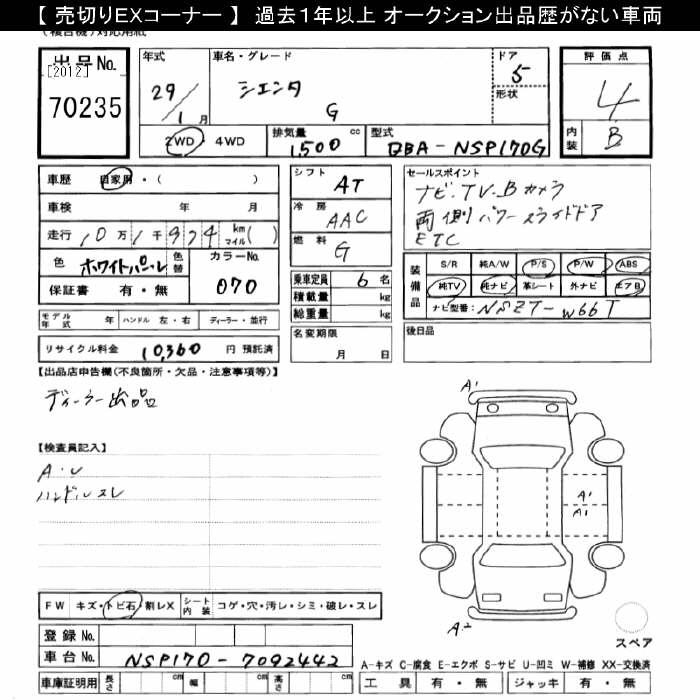 【 売切りEXコーナー 】 過去1年以上 オークション出品歴がない車両
(複合機)対応用紙
出品No. [2012] 70235
年式 29/1月
車名・グレード シエンタ G
ドア 5
形状
2WD・4WD
排気量 1,500 cc
型式 DBA-NSP170G
評価点 4
内装 B
車歴 自家用・( )
車検 年 月
走行 10万1千974 km マイル( )
色 ホワイトパール 色替
カラーNo. 070
保証書 有・無
モデル年式 年 ハンドル 左・右 ディーラー・並行
リサイクル料金 10,360 円 預託済
シフト AT
冷房 AAC
燃料 G
乗車定員 6 名
積載量 kg
総重量 kg
名変期限 月 日
セールスポイント
ナビ.TV.Bカメラ
両側パワースライドドア
ETC
装備品 S/R 純A/W P/S P/W ABS
純TV 純ナビ 革シート 外ナビ エアB
ナビ型番: NSZT-W66T
後日品
【出品店申告欄(不良箇所・欠品・注意事項等)】
ディーラー出品
【検査員記入】
A.U
ハンドルスレ
A1
A1
A1
A2
スペア
FW キズ・トビ石・割レX シート内装 コゲ・穴・汚レ・シミ・破レ・スレ
登録No.
車台No. NSP170-7092442
車庫証明用 長さ cm 幅 cm 高さ cm
A-キズ C-腐食 E-エクボ S-サビ U-凹ミ W-補修 XX-交換済
工具 有・無 ジャッキ 有・無